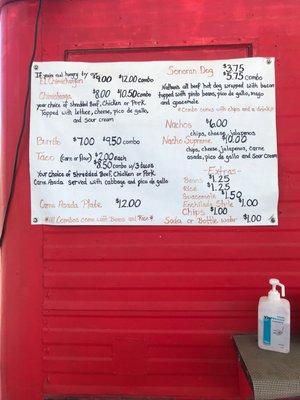 If you are hungry try
El Chimichangon $9.00 $12.00 combo
Chimichanga $8.00 10.50 combo
your choice of Shredded Beef, Chicken or Pork
Topped with lettuce, cheese, pico de gallo,
and sour cream
Burrito $7.00 $9.50 combo
Taco (corn or flour) $2.00 each
$8.50 combo w/3 tacos
Your choice of Shredded Beef, Chicken or Pork
Carne Asada Served with cabbage and pico de gallo
Carne Asada Plate $12.00
All Combos come with Beans and Rice
Sonoran Dog $3.75
$5.75 combo
Nathans all beef hot dog wrapped with bacon
topped with pinto beans, pico de gallo, mayo
and guacamole
Combo comes with chips and a drink
Nachos $6.00
chips, cheese, jalapenos
Nacho Supreme $10.00
chips, cheese, jalapenos, carne
asada, pico de gallo and Sour Cream
-Extras-
Beans $1.25
Rice $1.25
Guacamole $1.50
Enchilada Style $1.00
Chips $1.00
Soda or Bottle water $1.00